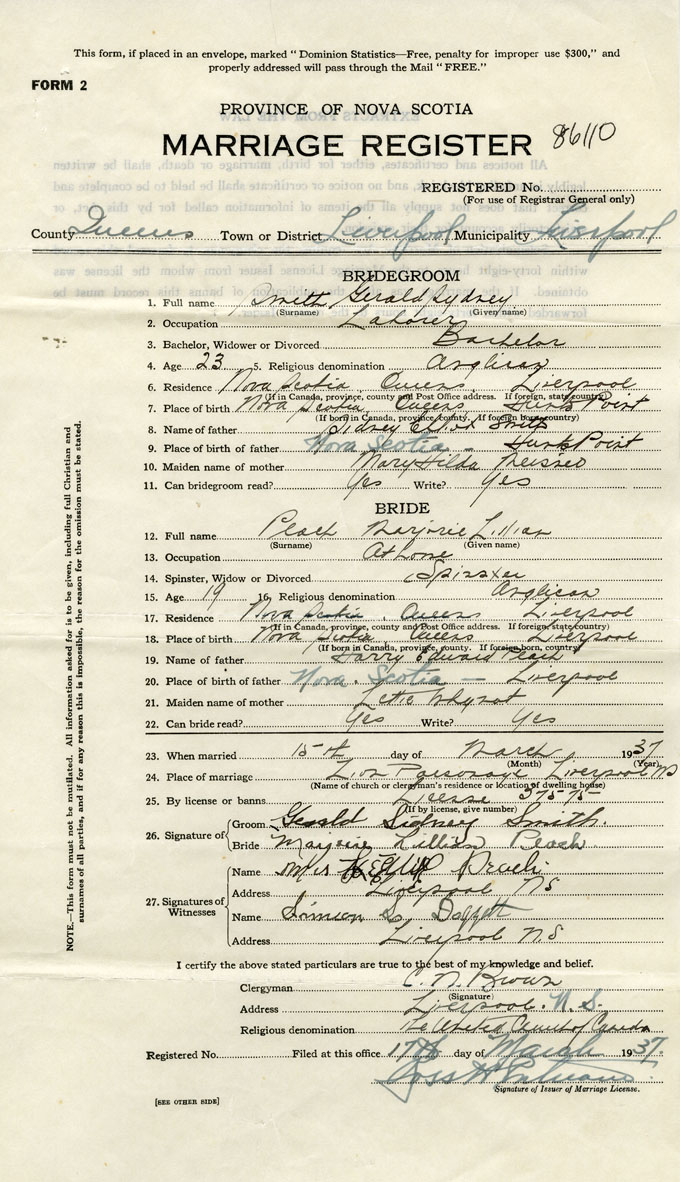 This form, if placed in an envelope, marked "Dominion Statistics—Free, penalty for improper use $300," and
properly addressed will pass through the Mail "FREE."
FORM 2
PROVINCE OF NOVA SCOTIA
MARRIAGE REGISTER 86110
REGISTERED No.
(For use of Registrar General only)
County Queens Town or District Liverpool Municipality Liverpool
BRIDEGROOM
1. Full name Smith Gerald Sydney
(Surname) (Given name)
2. Occupation Laborer
3. Bachelor, Widower or Divorced Bachelor
4. Age 23 5. Religious denomination Anglican
6. Residence Nova Scotia Queens Liverpool
(If in Canada, province, county and Post Office address. If foreign, state country)
7. Place of birth Nova Scotia Queens Hunts Point
(If born in Canada, province, county. If foreign born, country)
8. Name of father Sidney Smith
9. Place of birth of father Nova Scotia — Hunts Point
10. Maiden name of mother Mary Hilda
11. Can bridegroom read? Yes Write? Yes
BRIDE
12. Full name Peach Marjorie Lillian
(Surname) (Given name)
13. Occupation At home
14. Spinster, Widow or Divorced Spinster
15. Age 19 16. Religious denomination Anglican
17. Residence Nova Scotia, Queens Liverpool
(If in Canada, province, county and Post Office address. If foreign state country)
18. Place of birth Nova Scotia Queens Liverpool
(If born in Canada, province, county. If foreign born, country)
19. Name of father Harry Edward Peach
20. Place of birth of father Nova Scotia — Liverpool
21. Maiden name of mother Lettie Whynot
22. Can bride read? Yes Write? Yes
23. When married 15th day of March 1937
(Month) (Year)
24. Place of marriage Zion Parsonage Liverpool NS
(Name of church or clergyman's residence or location of dwelling house)
25. By license or banns License 37575
(If by license, give number)
26. Signature of Groom Gerald Sidney Smith.
Bride Marjorie Lillian Peach
27. Signatures of Witnesses
Name Mrs
Address Liverpool NS
Name Simeon
Address Liverpool N S
I certify the above stated particulars are true to the best of my knowledge and belief.
Clergyman C. N. Brown
(Signature)
Address Liverpool. N. S.
Religious denomination The United Church of Canada
Registered No. Filed at this office 17th day of March 1937.
Signature of Issuer of Marriage License.
[SEE OTHER SIDE]
NOTE.—This form must not be mutilated. All information asked for is to be given, including full Christian and
surnames of all parties, and if for any reason this is impossible, the reason for the omission must be stated.